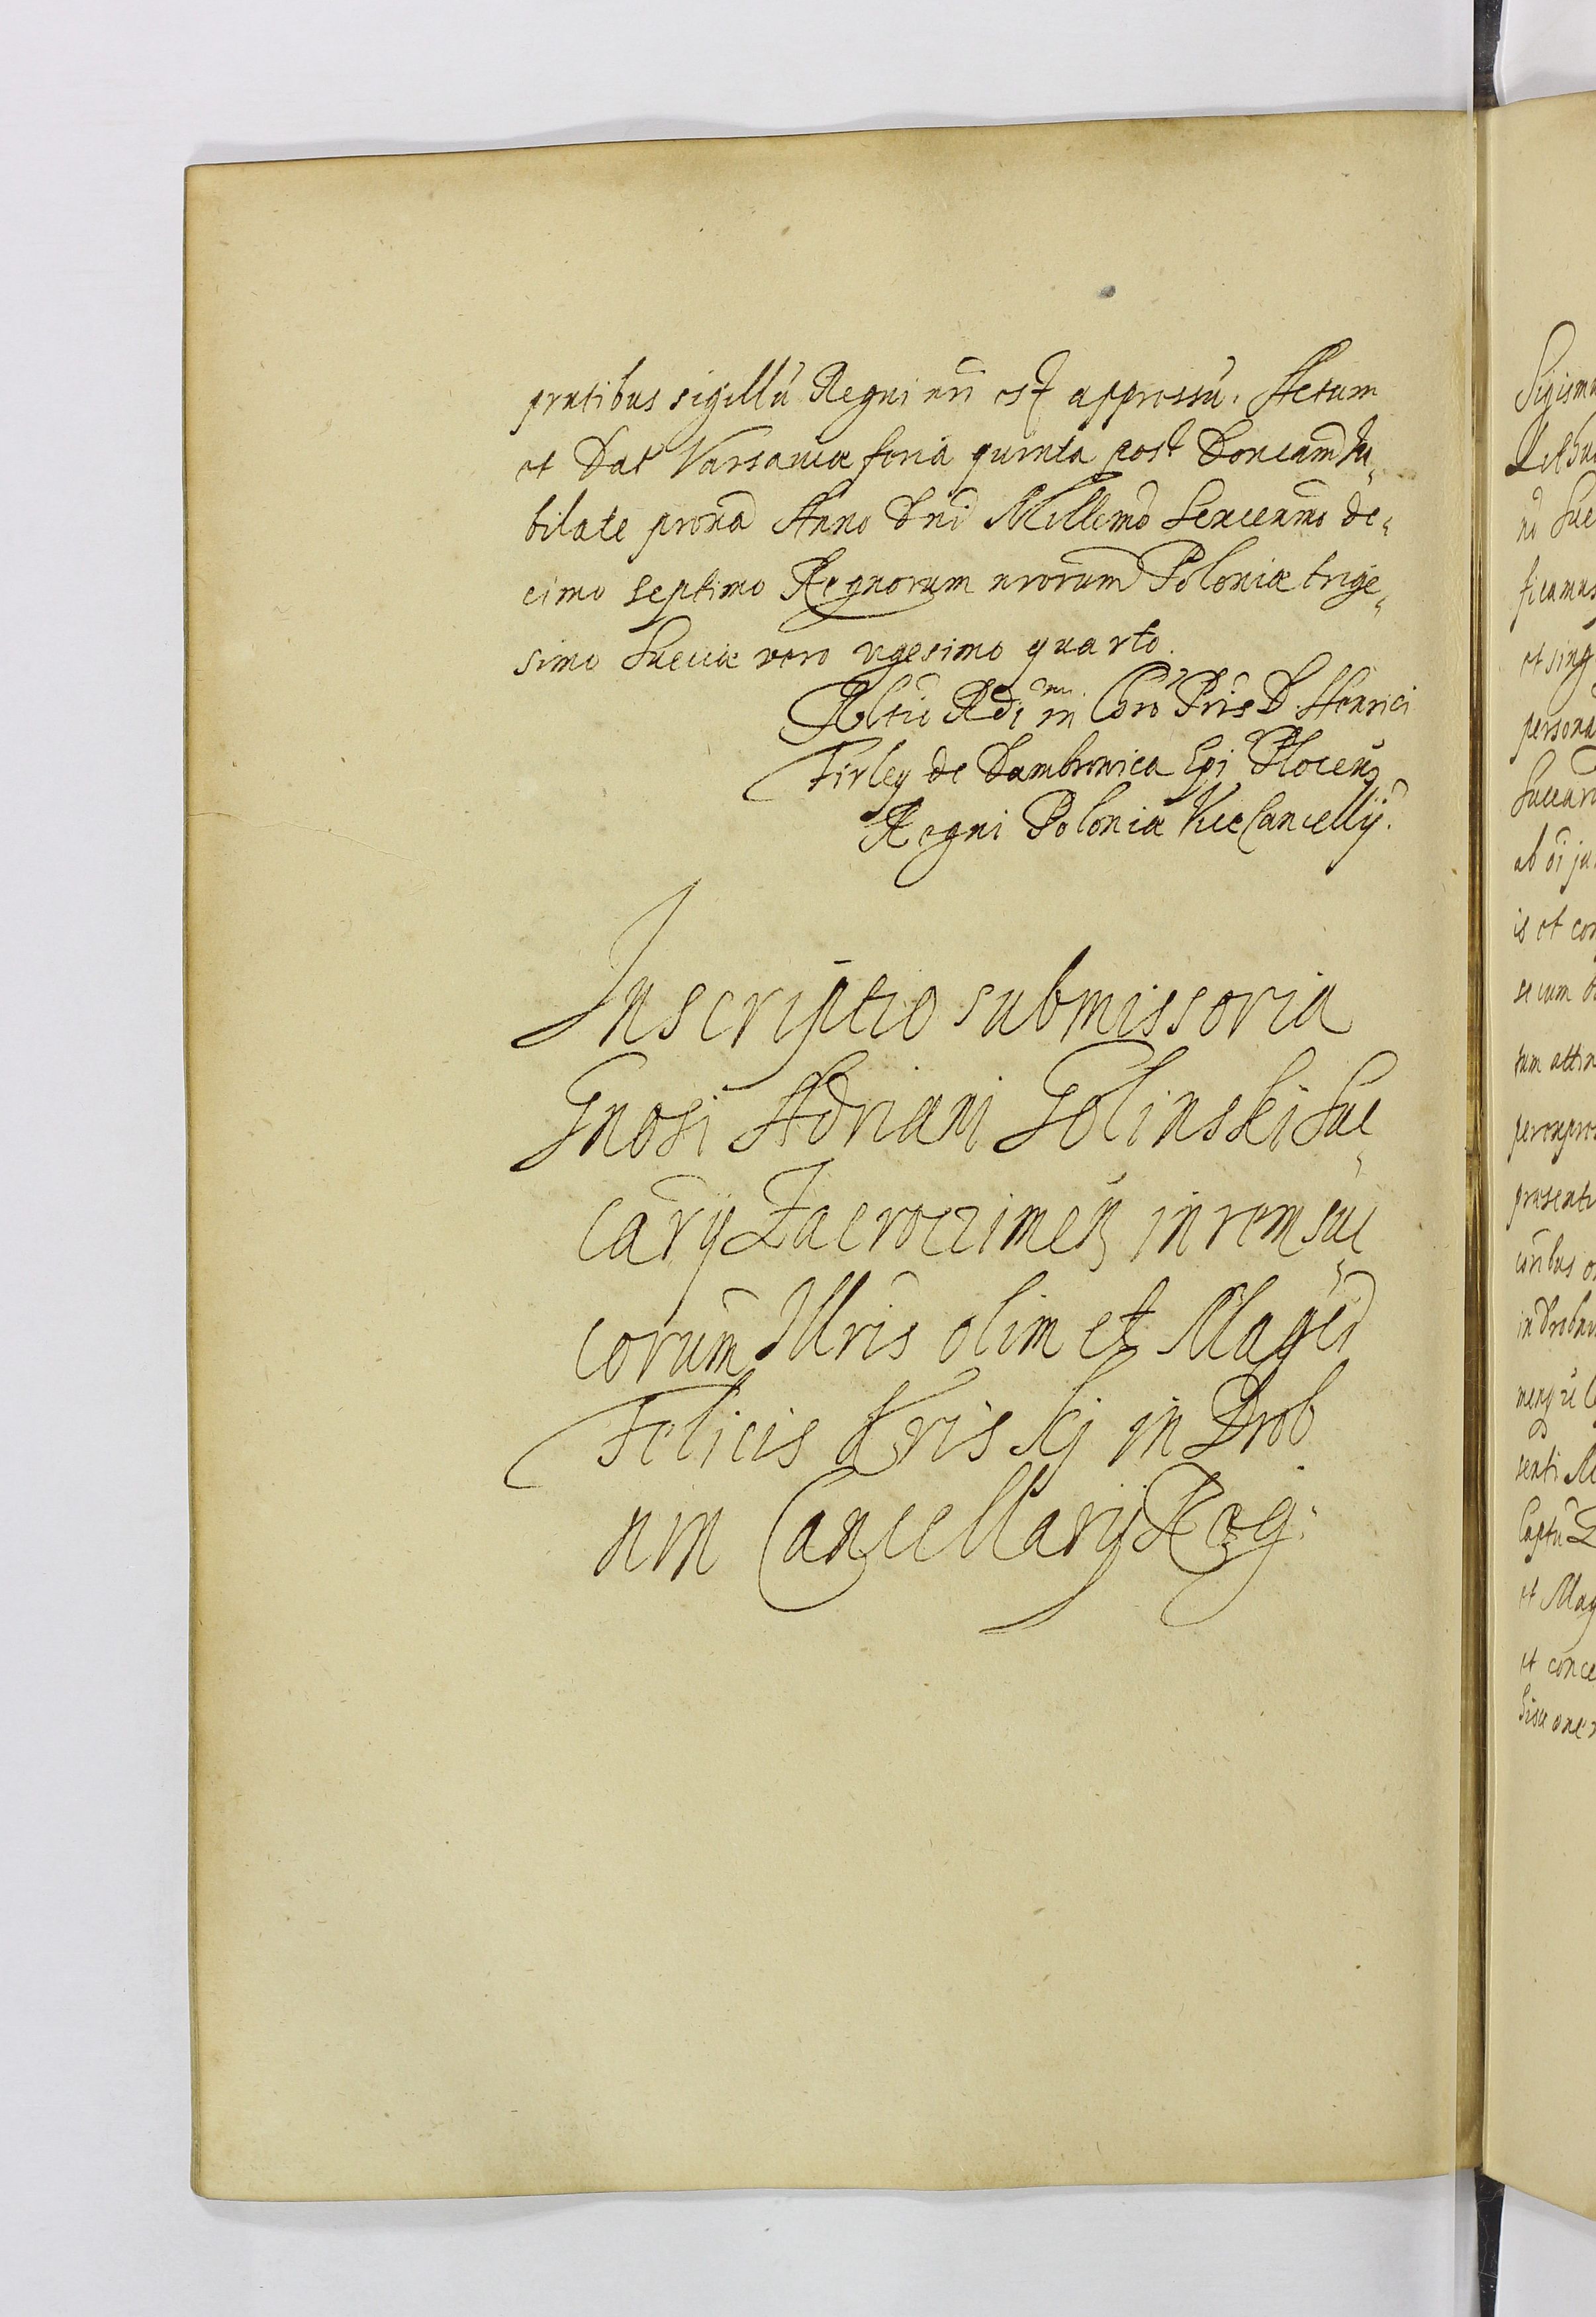 pntibus sigillū Regni nri est appressū. Actum
et Dat Varsaviæ feria quinta post Dnicam Ju„
bilate proxa Anno Dni Millimo Sexcenmo de„
cimo septimo Regnorum nrorum Poloniæ trige„
simo Sueciæ vero vigesimo quarto.
Rltio Rdi mi Chro Pris D. Henrici
Firley de Dambrowica Epi Plocen
Regni Poloniæ ViceCancellrij.
Inscriptio submissoria
Gnosi Adriani Golinski Suc„
carij Zacroczimen in rem suc„
corum Illris olim et Magci
Felicis Kris kj in Drob
nin Cancellarij Reg:
Sigism
Lithu
no Sue
ficamus
et sing
persona
Succar
ab oi ju
is et con
secum
tum attin
perexpres
presenti
onibus
in Drobni
senti M
Captu
et Mag
et conce